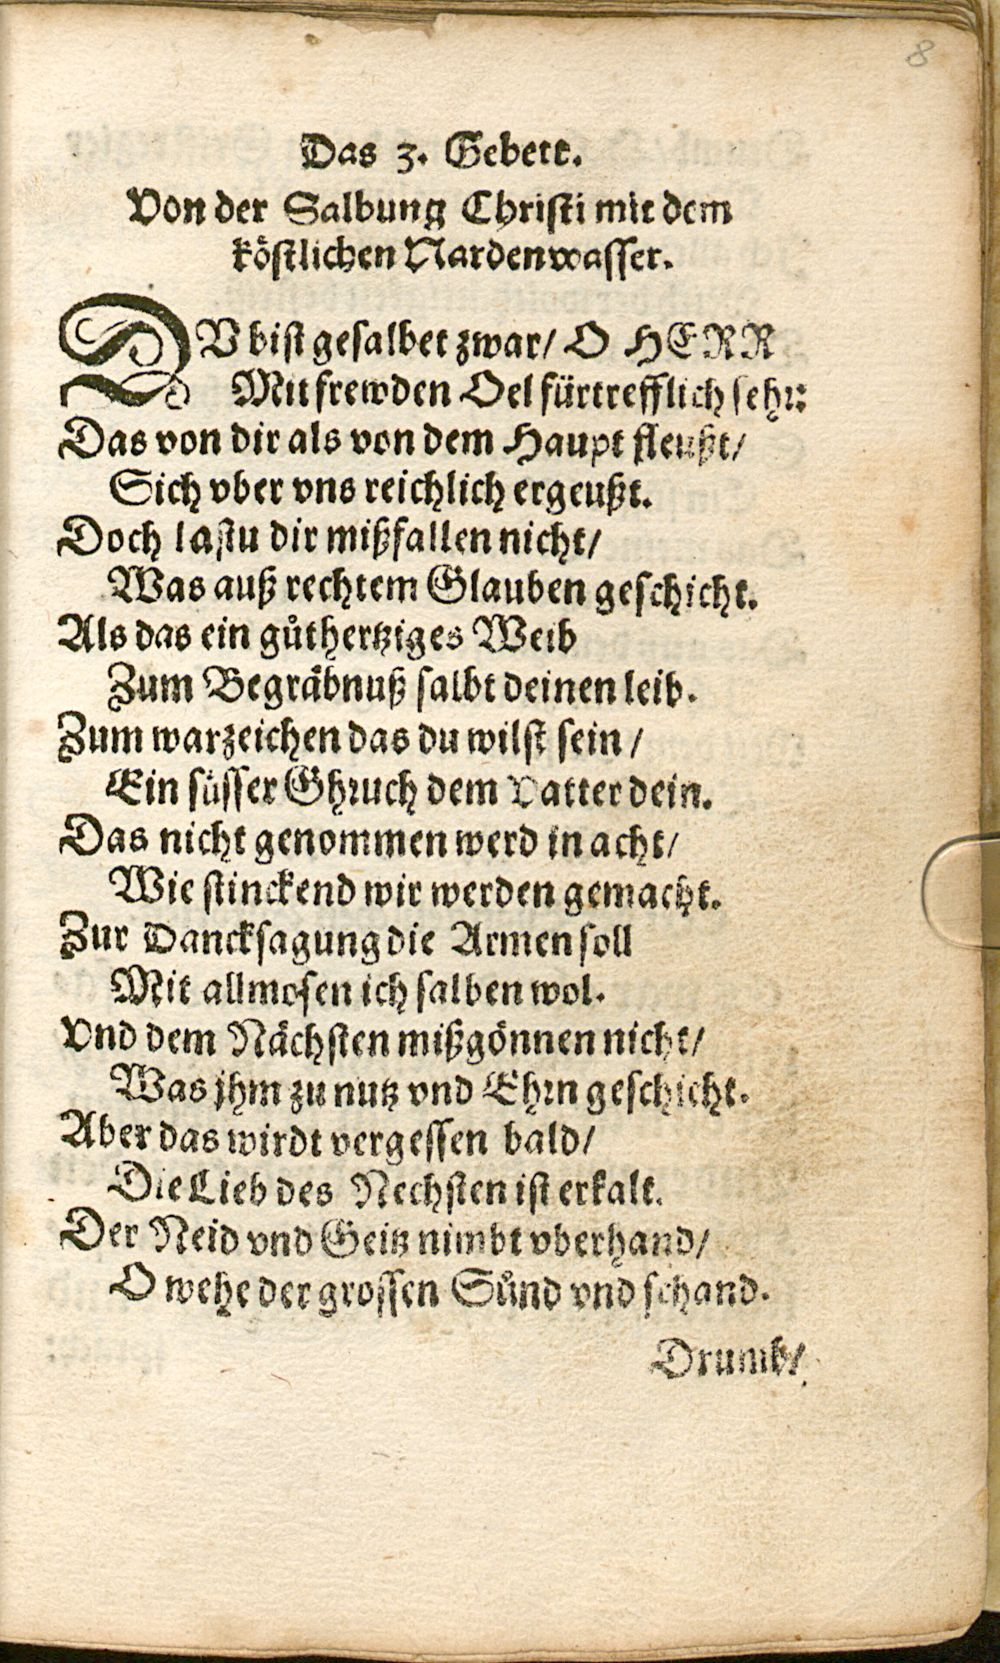 8
Das 3. Gebett.
Von der Salbung Christi mit dem
köstlichen Nardenwasser.
DV bist gesalbet zwar/ O HERR
Mit frewden Oel fürtrefflich sehr:
Das von dir als von dem Haupt fleußt/
Sich vber vns reichlich ergeußt.
Doch lastu dir mißfallen nicht/
Was auß rechtem Glauben geschicht.
Als das ein gůthertziges Weib
Zum Begräbnuß salbt deinen leib.
Zum warzeichen das du wilst sein/
Ein süsser Ghruch dem Vatter dein.
Das nicht genommen werd in acht/
Wie stinckend wir werden gemacht.
Zur Dancksagung die Armen soll
Mit allmosen ich salben wol.
Vnd dem Nächsten mißgönnen nicht/
Was jhm zu nutz vnd Ehrn geschicht.
Aber das wirdt vergessen bald/
Die Lieb des Nechsten ist erkalt.
Der Neid vnd Geitz nimbt vberhand/
O wehe der grossen Sůnd vnd schand.
Drumb/